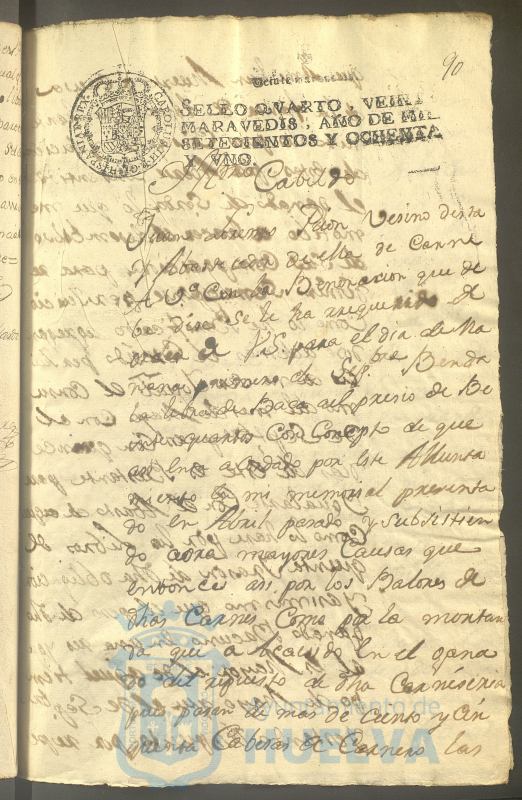 90
Veinte maravedis
SELLO QVARTO, VEIN
MARAVEDIS, AÑO DE MIL
SETECIENTOS Y OCHENTA
Y VNO.
Cabildo
Vesino desta
Abastesedor de de Carne
a Vs. Con la Benerasion que de
be dise: se le ha requerido de
orden de V.S. para el dia de Ma
ñana primero de Benda
la libra de Baca al presio de Be
inte quartos Con Consepto de que
por este Allunta
miento a mi memorial presenta
do en Abril pasado y subsistien
do aora mayores Causas que
entonces asi por los Balores de
dhas Carnes Como por la mortan
da que a acaesido en el gana
do del repuesto de dha Carneseria
pues pasan de mas de Ciento y Cin
quenta Cabesas de Carnero las
Ayuntamiento de
HUELVA